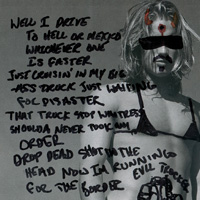 WELL I DRIVE
TO HELL OR MEXICO
WHICHEVER ONE
IS FASTER
JUST CRUISIN' IN MY BIG
-ASS TRUCK JUST WAITING
FOR DISASTER
THAT TRUCK STOP WAITRESS
SHOULDA NEVER TOOK MY
ORDER
DROP DEAD SHOT IN THE
HEAD NOW I'M RUNNING
FOR THE BORDER
EVIL TRUCKER